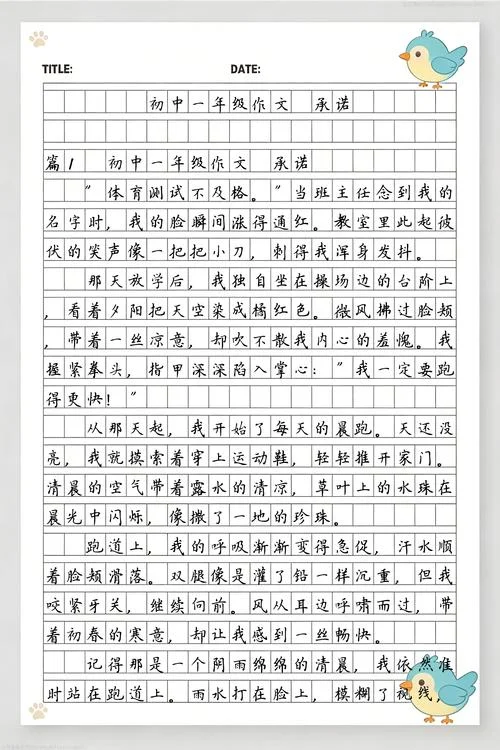 TITLE: DATE:
初中一年级作文 承诺
篇1 初中一年级作文 承诺
"体育测试不及格。"当班主任念到我的
名字时，我的脸瞬间涨得通红。教室里此起彼
伏的笑声像一把把小刀，刺得我浑身发抖。
那天放学后，我独自坐在操场边的台阶上
，看着夕阳把天空染成橘红色。微风拂过脸颊
，带着一丝凉意，却吹不散我内心的羞愧。我
握紧拳头，指甲深深陷入掌心："我一定要跑
得更快！"
从那天起，我开始了每天的晨跑。天还没
亮，我就摸索着穿上运动鞋，轻轻推开家门。
清晨的空气带着露水的清凉，草叶上的水珠在
晨光中闪烁，像撒了一地的珍珠。
跑道上，我的呼吸渐渐变得急促，汗水顺
着脸颊滑落。双腿像是灌了铅一样沉重，但我
咬紧牙关，继续向前。风从耳边呼啸而过，带
着初春的寒意，却让我感到一丝畅快。
记得那是一个阴雨绵绵的清晨，我依然准
时站在跑道上。雨水打在脸上，模糊了视线，